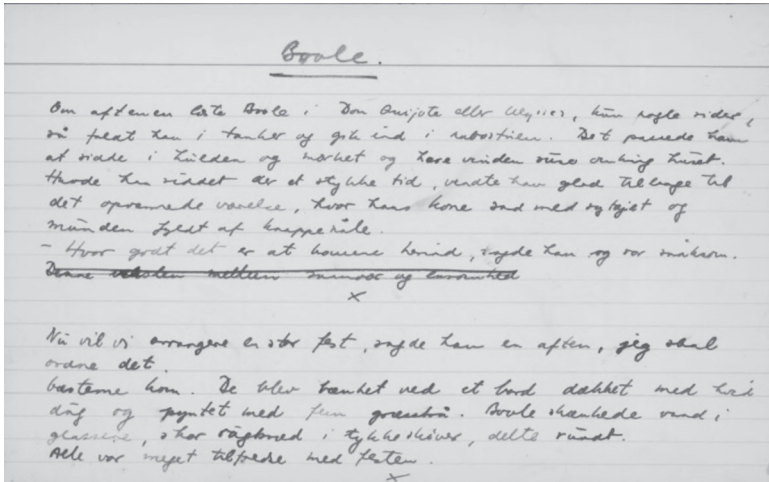 Boole.
Om aftenen læste Boole i Don Quijote eller Ulysses, kun nogle sider,
så faldt han i tanker og gik ind i Det passede ham
at sidde i kulden og mørket og høre vinden suse omkring huset.
Havde han siddet der et stykke tid, vendte han glad tilbage til
det opvarmede værelse, hvor hans kone sad med sytøjet og
munden fyldt af knappenåle.
- Hvor godt det er at komme herind, sagde han og var snaksom.
Denne vekslen mellem samvær og ensomhed
x
Nu vil vi arrangere en stor fest, sagde han en aften, jeg skal
ordne det.
Gæsterne kom. De blev bænket ved et bord dækket med hvid
dug og pyntet med græsstrå. Boole skænkede vand i
glassene, skar rugbrød i tykke skiver, delte rundt.
Alle var meget tilfredse med festen.
x